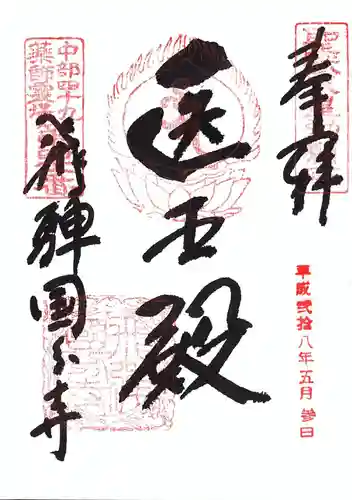 奉拝
平成弐拾八年五月参日
医王殿
飛騨国分寺
中部四十九
薬師霊場